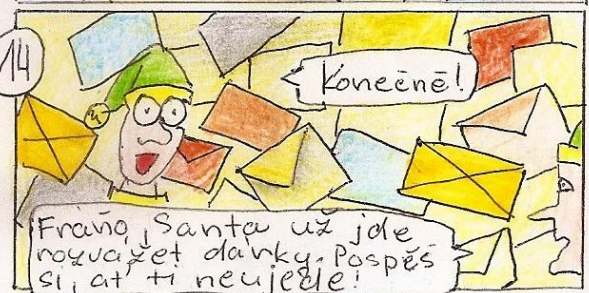 14
Konečně!
Fráňo, Santa už jde
rozvážet dárky. Pospěš
si, ať ti neujede!